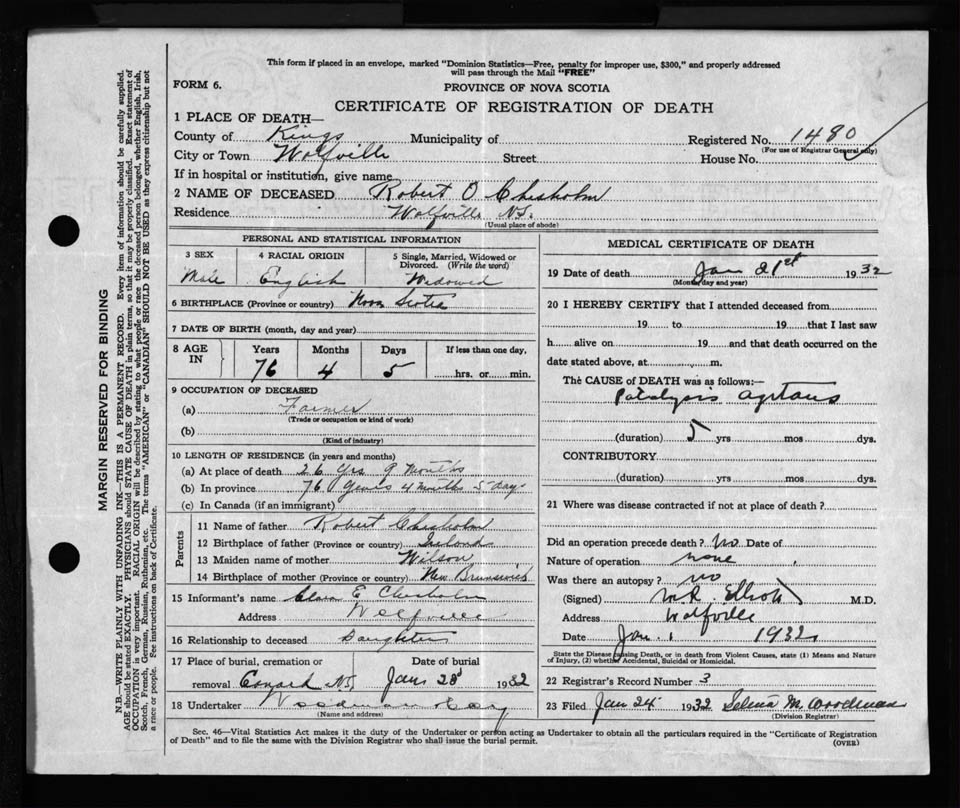 This form if placed in an envelope, marked "Dominion Statistics—Free, penalty for improper use, $300," and properly addressed
will pass through the Mail "FREE"
FORM 6.
PROVINCE OF NOVA SCOTIA
CERTIFICATE OF REGISTRATION OF DEATH
1 PLACE OF DEATH—
County of Kings Municipality of Registered No. 1480
(For use of Registrar General only)
City or Town Wolfville Street House No.
If in hospital or institution, give name
2 NAME OF DECEASED Robert O Chisholm
Residence Wolfville N.S.
(Usual place of abode)
PERSONAL AND STATISTICAL INFORMATION
3 SEX 4 RACIAL ORIGIN 5 Single, Married, Widowed or
Divorced. (Write the word)
Male English Widowed
6 BIRTHPLACE (Province or country) Nova Scotia
7 DATE OF BIRTH (month, day and year)
8 AGE IN Years Months Days If less than one day,
76 4 5 hrs. or min.
9 OCCUPATION OF DECEASED
(a) Farmer
(Trade or occupation or kind of work)
(b)
(Kind of industry)
10 LENGTH OF RESIDENCE (in years and months)
(a) At place of death 26 Yrs 9 Months
(b) In province 76 Years 4 months 5 days
(c) In Canada (if an immigrant)
Parents
11 Name of father Robert Chisholm
12 Birthplace of father (Province or country) Ireland
13 Maiden name of mother Wilson
14 Birthplace of mother (Province or country) New Brunswick
15 Informant's name Clara E Chisholm
Address Wolfville
16 Relationship to deceased Daughter
17 Place of burial, cremation or Date of burial
removal N.S. Jan 23d 1932
18 Undertaker Woodman
(Name and address)
MEDICAL CERTIFICATE OF DEATH
19 Date of death Jan 21st 1932
(Month, day and year)
20 I HEREBY CERTIFY that I attended deceased from
19 to 19 that I last saw
h alive on 19 and that death occurred on the
date stated above, at m.
The CAUSE of DEATH was as follows:—
Paralysis agitans
(duration) 5 yrs mos dys.
CONTRIBUTORY
(duration) yrs mos dys.
21 Where was disease contracted if not at place of death?
Did an operation precede death? no Date of
Nature of operation none
Was there an autopsy? no
(Signed) Elliott M.D.
Address Wolfville
Date Jan. 1932
State the Disease causing Death, or in death from Violent Causes, state (1) Means and Nature
of Injury, (2) whether Accidental, Suicidal or Homicidal.
22 Registrar's Record Number 3
23 Filed Jan 24 1932 Selina M. Woodman
(Division Registrar)
Sec. 46—Vital Statistics Act makes it the duty of the Undertaker or person acting as Undertaker to obtain all the particulars required in the "Certificate of Registration
of Death" and to file the same with the Division Registrar who shall issue the burial permit.
(OVER)
MARGIN RESERVED FOR BINDING
N.B.—WRITE PLAINLY WITH UNFADING INK—THIS IS A PERMANENT RECORD. Every item of information should be carefully supplied.
AGE should be stated EXACTLY. PHYSICIANS should STATE CAUSE OF DEATH in plain terms, so that it may be properly classified. Exact statement of
OCCUPATION is very important. RACIAL ORIGIN will be described by stating to what people or race the deceased person belonged, whether English, Irish,
Scotch, French, German, Russian, Ruthenian, etc. The terms "AMERICAN" or "CANADIAN" SHOULD NOT BE USED as they express citizenship but not
a race or people. See instructions on back of Certificate.